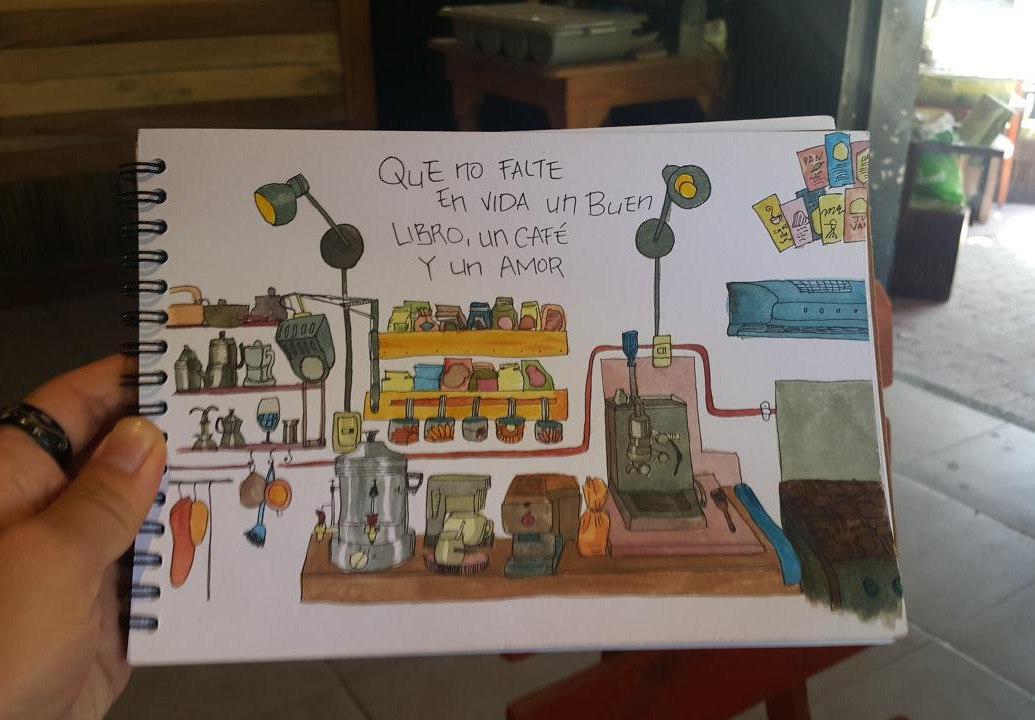 QUE NO FALTE
EN VIDA UN BUEN
LIBRO, UN CAFÉ
Y UN AMOR
PAN